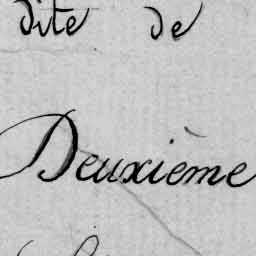 dite de
Deuxième